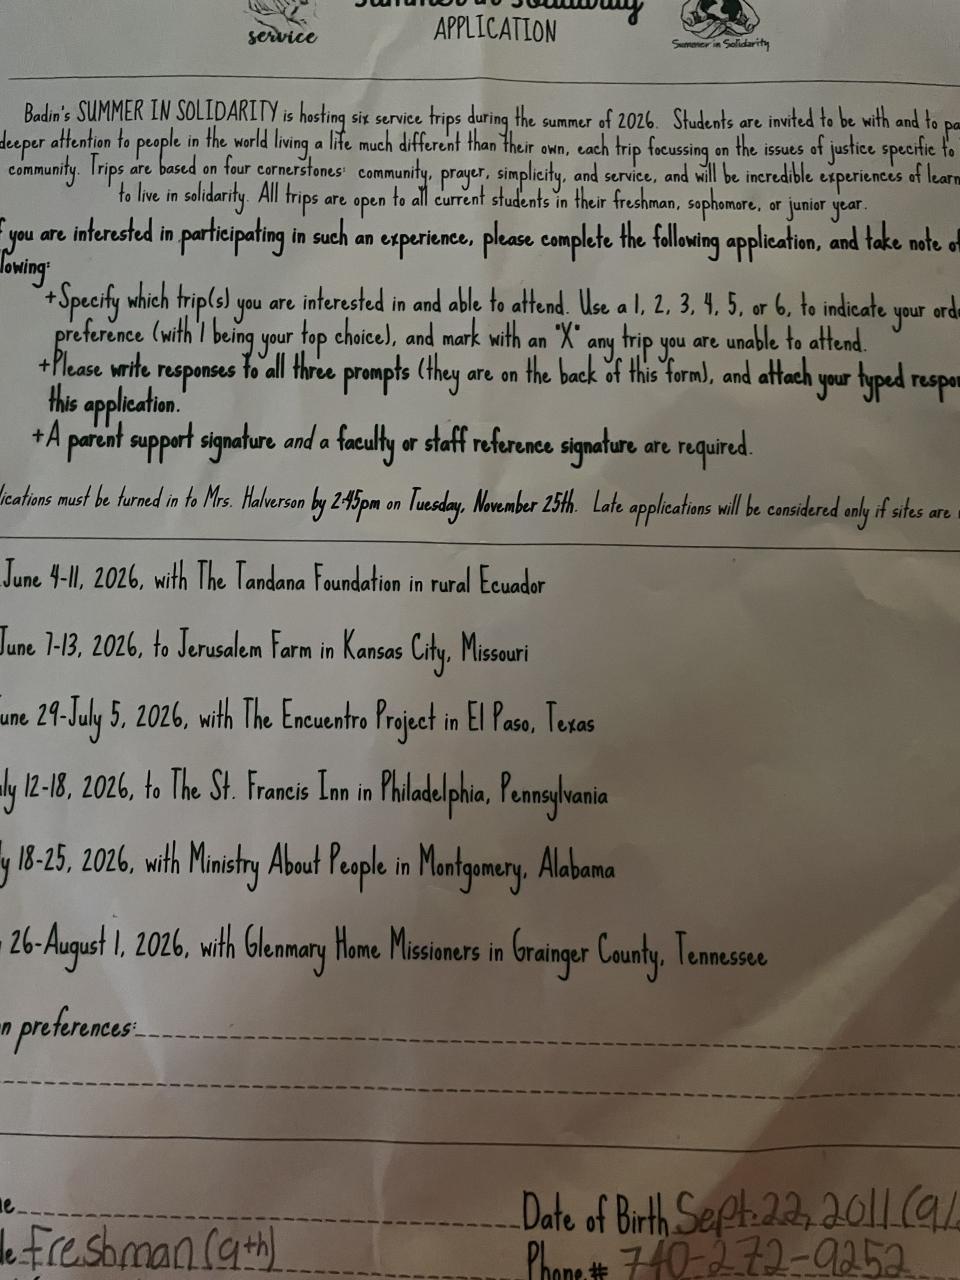 service
APPLICATION
Summer in Solidarity
Badin's SUMMER IN SOLIDARITY is hosting six service trips during the summer of 2026. Students are invited to be with and to pa
deeper attention to people in the world living a life much different than their own, each trip focussing on the issues of justice specific to
community. Trips are based on four cornerstones: community, prayer, simplicity, and service, and will be incredible experiences of learn
to live in solidarity. All trips are open to all current students in their freshman, sophomore, or junior year.
f you are interested in participating in such an experience, please complete the following application, and take note of
lowing:
+Specify which trip(s) you are interested in and able to attend. Use a 1, 2, 3, 4, 5, or 6, to indicate your ord
preference (with 1 being your top choice), and mark with an "X" any trip you are unable to attend.
+Please write responses to all three prompts (they are on the back of this form), and attach your typed respon
this application.
+A parent support signature and a faculty or staff reference signature are required.
lications must be turned in to Mrs. Halverson by 2:45pm on Tuesday, November 25th. Late applications will be considered only if sites are
June 4-11, 2026, with The Tandana Foundation in rural Ecuador
June 7-13, 2026, to Jerusalem Farm in Kansas City, Missouri
une 29-July 5, 2026, with The Encuentro Project in El Paso, Texas
ly 12-18, 2026, to The St. Francis Inn in Philadelphia, Pennsylvania
y 18-25, 2026, with Ministry About People in Montgomery, Alabama
26-August 1, 2026, with Glenmary Home Missioners in Grainger County, Tennessee
n preferences:
e Date of Birth Sept. 22, 2011 (9/
de Freshman (9th) Phone # 740-272-9252